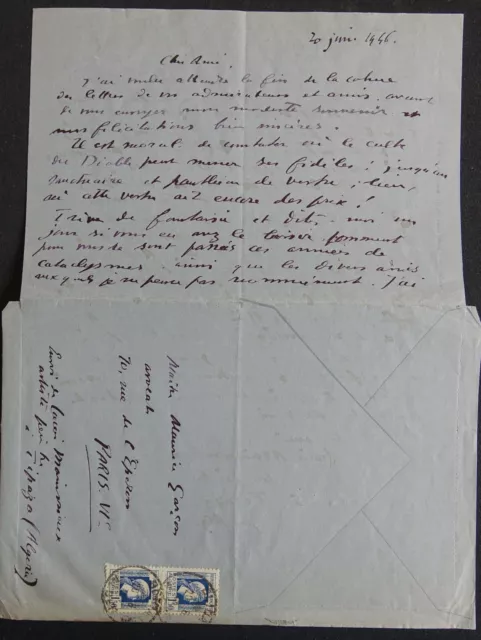 20 juin 1946.
Cher Ami,
J'ai voulu attendre la fin de la cohue
des lettres de vos admirateurs et amis avant
de vous envoyer mon modeste souvenir et
mes félicitations bien sincères.
Il est moral de constater où le culte
du Diable peut mener ses fidèles ! jusqu'au
sanctuaire et panthéon de vertu
où cette vertu ait encore des prix !
Trêve de fantaisie et dites-moi un
jour si vous en avez le loisir comment
pour vous se sont passés ces années de
cataclysmes ainsi que les divers amis
aux quels je ne pense pas J'ai
Maître Maurice Garçon
avocat
10, rue de l'Eperon
PARIS VIe
Envoi de
artiste peintre
à Tipaza (Algérie)